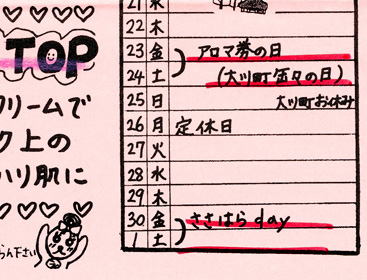 TOP
クリームで
ク上の
ハリ肌に
らん下さい
21 水
22 木
23 金 アロマ券の日
24 土
25 日 大川町お休み
26 月 定休日
27 火
28 水
29 木
30 金 ささはら day
1 土